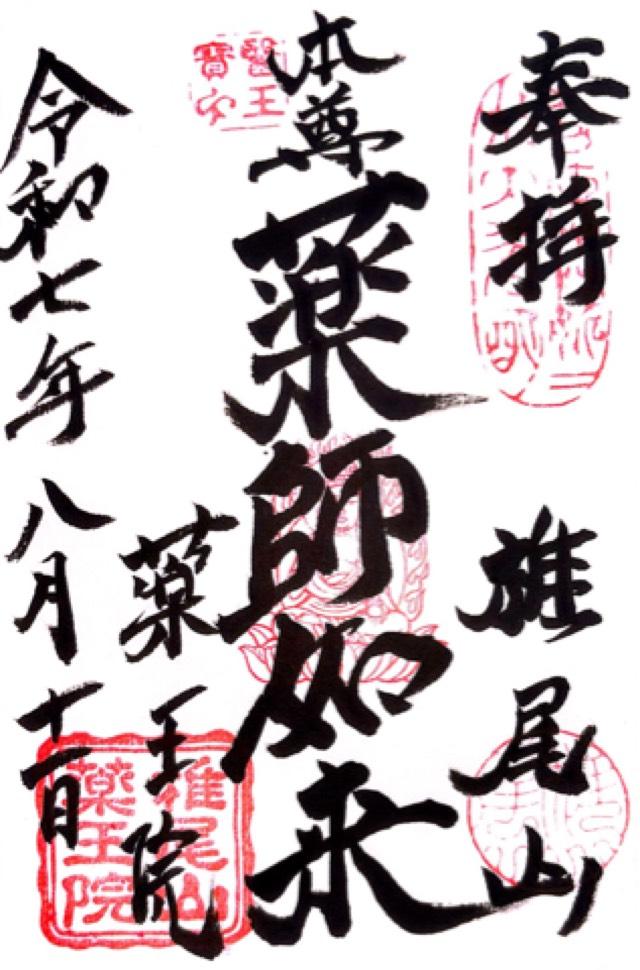 奉拝
椎尾山
本尊 薬師如来
薬王院
令和七年八月十一日
醫王
寶印
椎尾山
薬王院